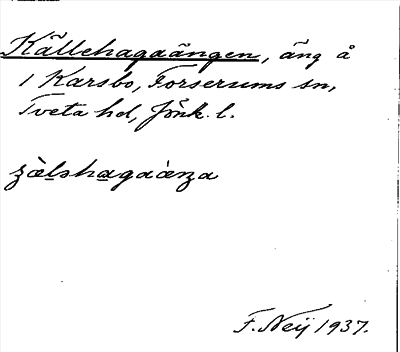 Källehagaängen, äng å
1 Karsbo, Forserums sn,
Tveta hd, Jönk. l.
F. Neij 1937.